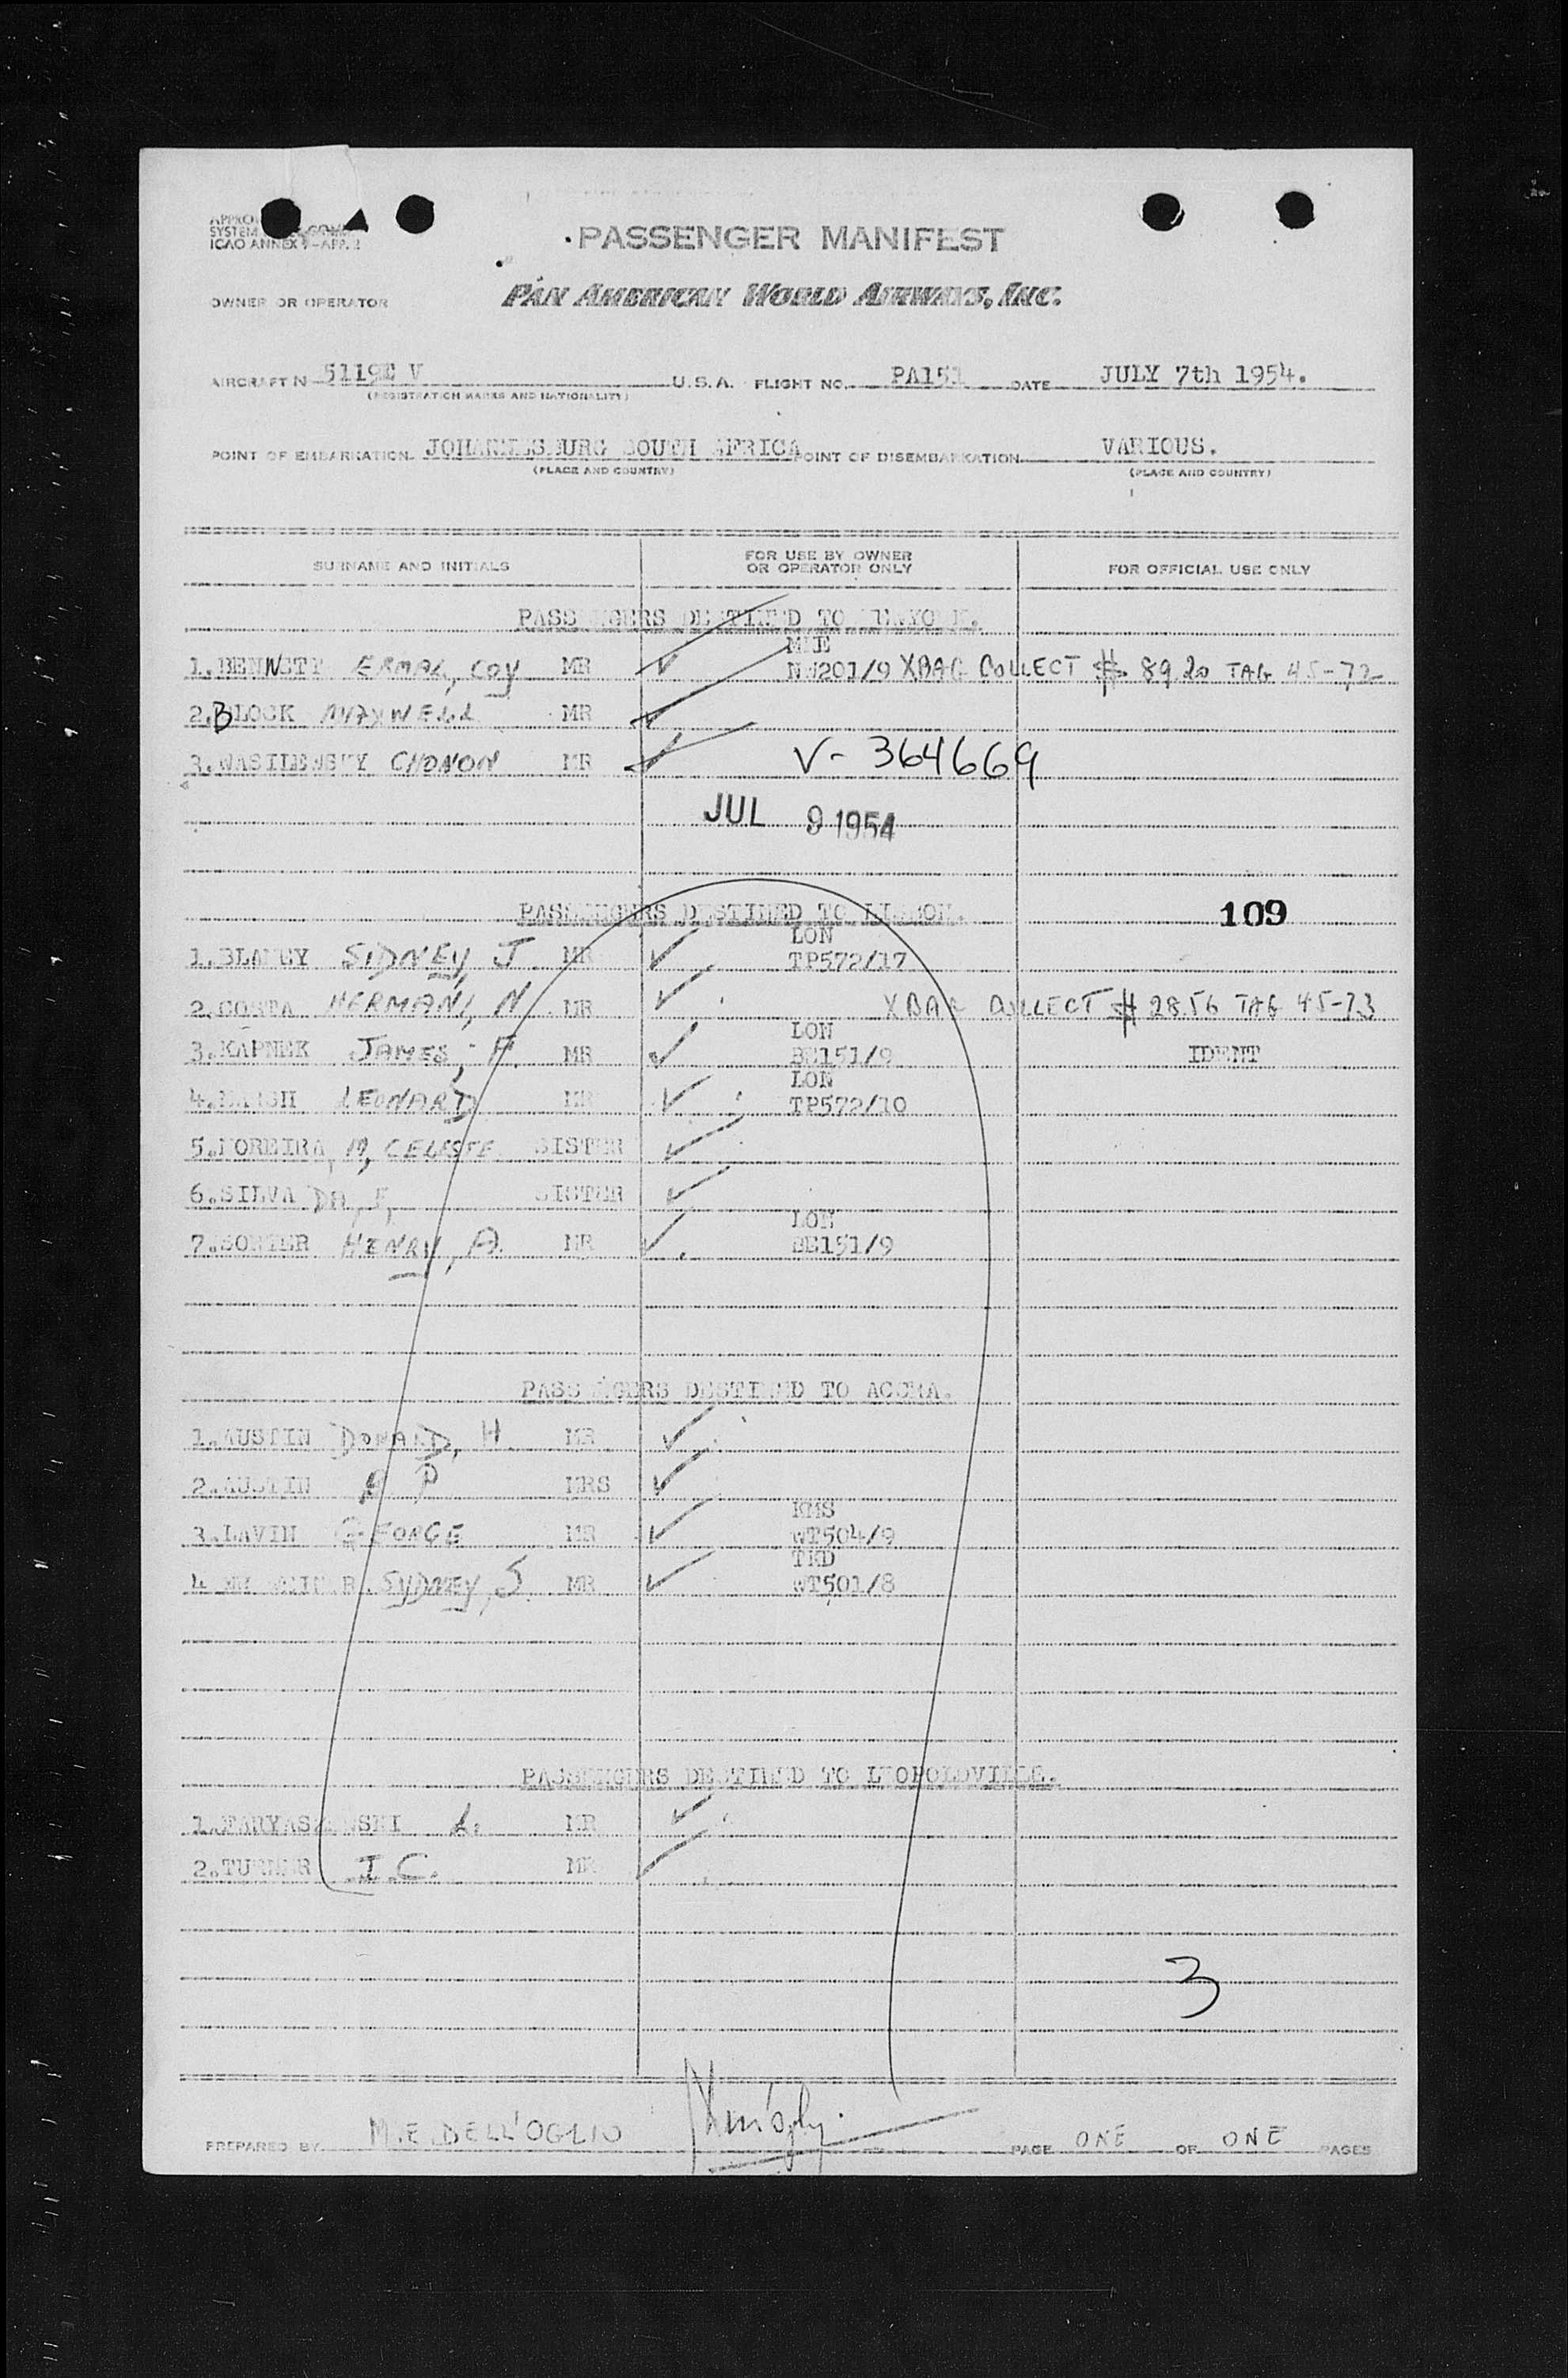 PASSENGER MANIFEST
ICAO ANNEX 9-APP. 2
OWNER OR OPERATOR PAN AMERICAN WORLD AIRWAYS, INC.
AIRCRAFT N 5119E V U.S.A. FLIGHT NO. PA151 DATE JULY 7th 1954.
(REGISTRATION MARKS AND NATIONALITY)
POINT OF EMBARKATION JOHANNESBURG SOUTH AFRICA POINT OF DISEMBARKATION VARIOUS.
(PLACE AND COUNTRY) (PLACE AND COUNTRY)
SURNAME AND INITIALS FOR USE BY OWNER OR OPERATOR ONLY FOR OFFICIAL USE ONLY
PASSENGERS DESTINED TO
1.BENNETT ERMAL, COY MR NW201/9 XBAG COLLECT $ 89.20 TAG 45-72
2.BLOCK MAXWELL MR
3.WASILEWSKY CHONON MR V- 364669
JUL 9 1954
PASSENGERS DESTINED TO LISBON. 109
LON
1. SIDNEY J MR TP572/17
2.COSTA HERMANI, N MR XBAG COLLECT $ 28.56 TAG 45-73
LON
3.KAPNEK JAMES, F. MR BE151/9 IDENT
LON
4. LEONARD MR TP572/10
5.MOREIRA, M, CELESTE SISTER
6.SILVA DA, SISTER
LON
7. HENRY, A. MR BE151/9
PASSENGERS DESTINED TO ACCRA.
1.AUSTIN DONALD, H. MR
2.AUSTIN P MRS
KMS
3.LAVIN GEORGE MR WT504/9
TKD
4 SYDNEY, S. MR WT501/8
PASSENGERS DESTINED TO LEOPOLDVILLE.
1. L. MR
2.TURNER I.C. MR
3
PREPARED BY M.E. DELL'OGLIO PAGE ONE OF ONE PAGES